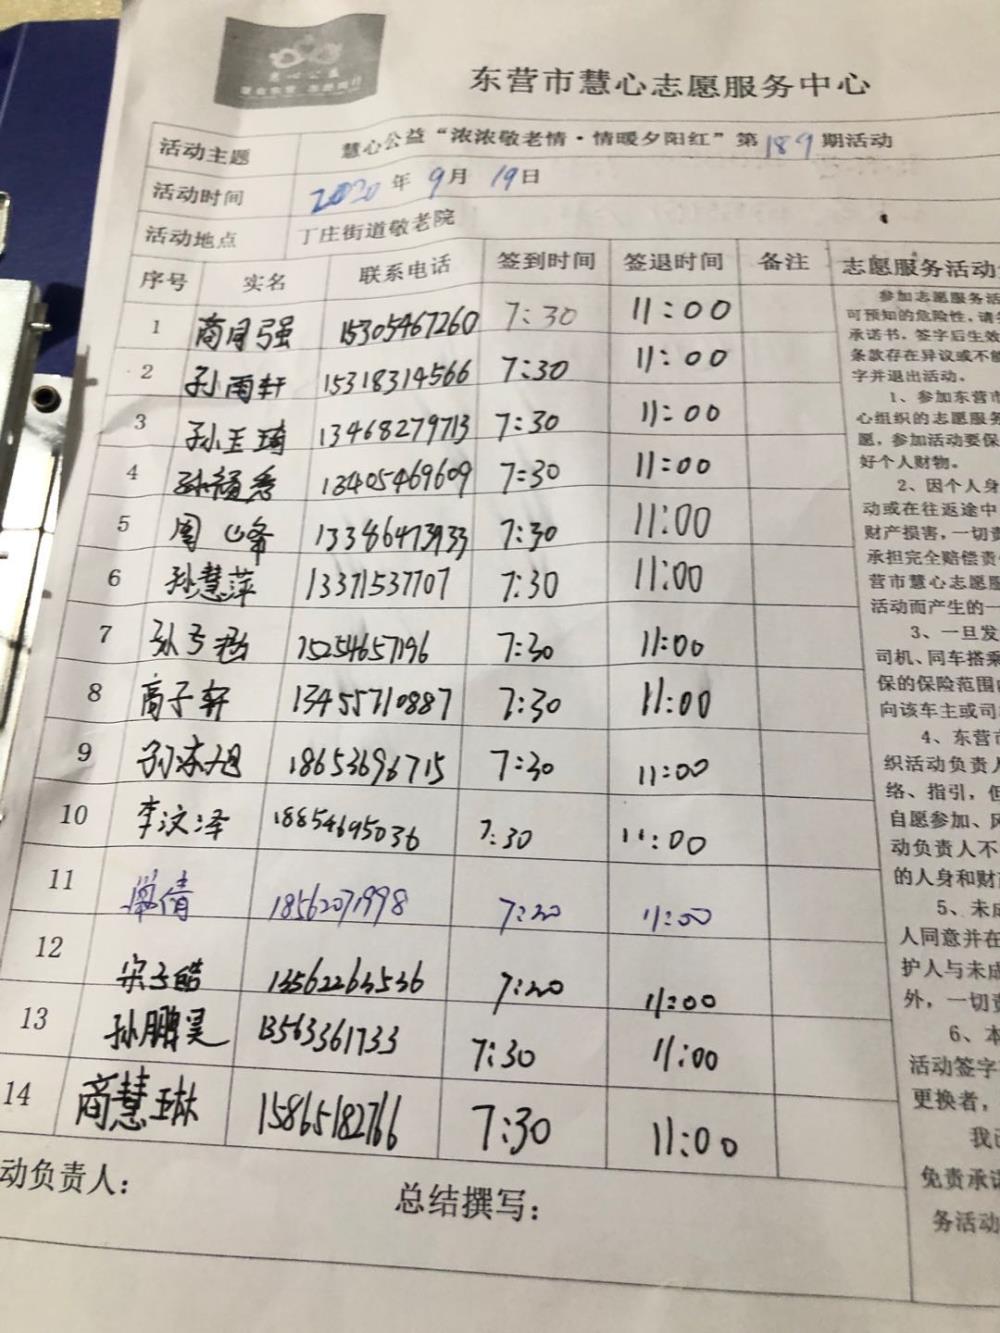 东营市慧心志愿服务中心
活动主题 慧心公益“浓浓敬老情·情暖夕阳红”第189期活动
活动时间 2020年9月19日
活动地点 丁庄街道敬老院
序号 实名 联系电话 签到时间 签退时间 备注
1 商同强 15305467260 7:30 11:00
2 孙雨轩 15318314566 7:30 11:00
3 孙王琦 13468279713 7:30 11:00
4 13405469609 7:30 11:00
5 周 峰 13346473933 7:30 11:00
6 孙慧萍 13371537707 7:30 11:00
7 15254657196 7:30 11:00
8 商子轩 13455710887 7:30 11:00
9 18653696715 7:30 11:00
10 李汶泽 18854695036 7:30 11:00
11 倩 18562071998 7:30 11:00
12 宋子皓 13562263536 7:30 11:00
13 孙鹏昊 13563361733 7:30 11:00
14 商慧琳 15865182766 7:30 11:00
动负责人： 总结撰写：
志愿服务活动
参加志愿服务活
可预知的危险性，请
承诺书，签字后生效
条款存在异议或不能
字并退出活动。
1、参加东营市
心组织的志愿服务
愿，参加活动要保
好个人财物。
2、因个人身
动或在往返途中
财产损害，一切责
承担完全赔偿责
营市慧心志愿服
活动而产生的一
3、一旦发
司机、同车搭乘
保的保险范围
向该车主或司
4、东营市
织活动负责人
络、指引，但
自愿参加、风
动负责人不
的人身和财
5、未成
人同意并在
护人与未成
外，一切责
6、本
活动签字
更换者，
我已
免责承诺
务活动